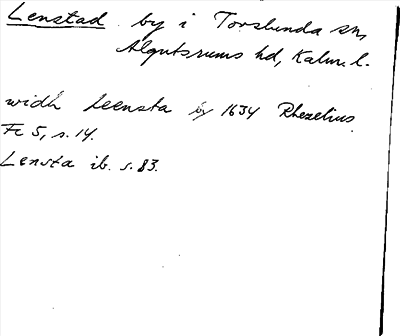 Lenstad by i Torslunda sn,
Algutsrums hd, Kalm. l.
widh Leensta by 1634 Rhezelius
Fc 5, s. 14.
Lensta ib. s. 83.